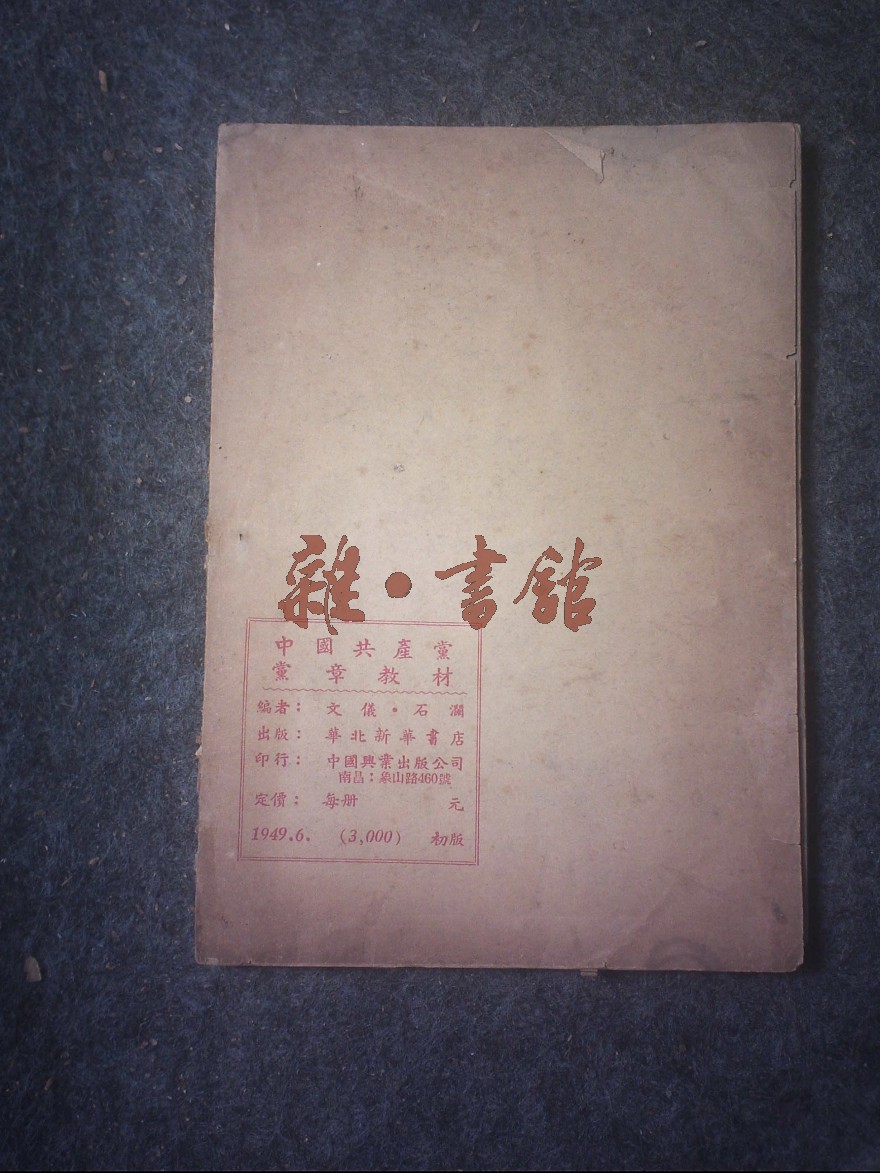 雜·書舘
中國共產黨
黨章教材
編者：文儀·石澗
出版：華北新華書店
印行：中國興業出版公司
南昌：象山路460號
定價：每册 元
1949.6. (3,000) 初版